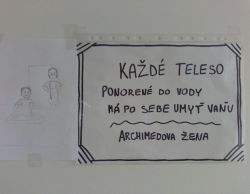 KAŽDÉ TELESO
PONORENÉ DO VODY
MÁ PO SEBE UMYŤ VAŇU
ARCHIMEDOVA ŽENA